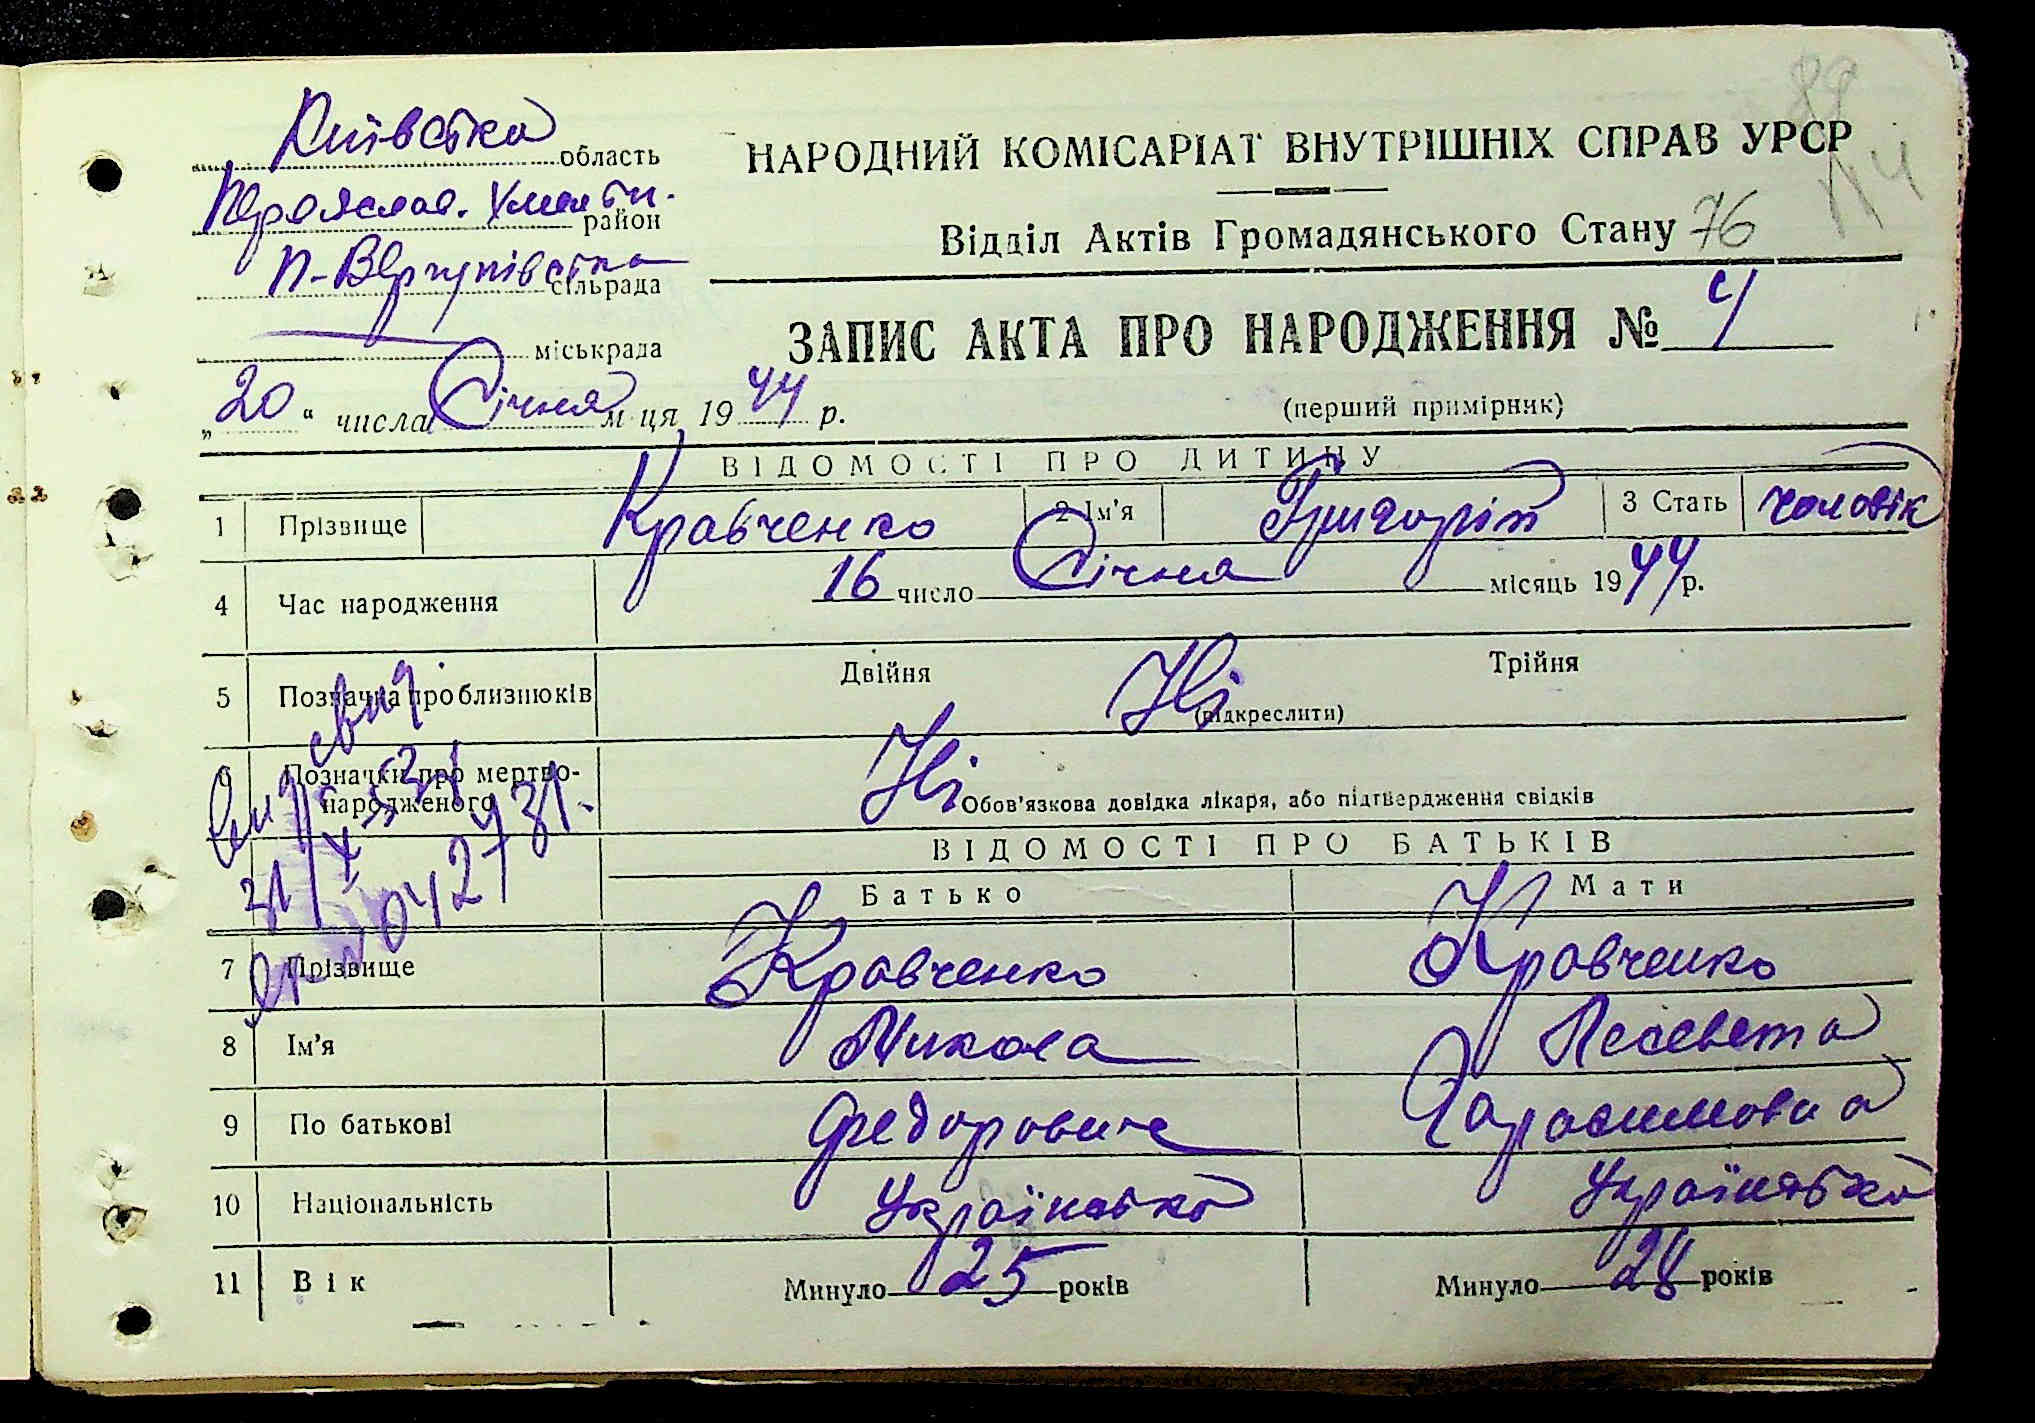 Київска область
Переяслав. Хмельн. район
П-Вергунівска сільрада
міськрада
„20“ числа Січня м-ця, 1944 р.
89
НАРОДНИЙ КОМІСАРІАТ ВНУТРІШНІХ СПРАВ УРСР
Відділ Актів Громадянського Стану 76
ЗАПИС АКТА ПРО НАРОДЖЕННЯ № 4
(перший примірник)
ВІДОМОСТІ ПРО ДИТИНУ
1 Прізвище Кравченко 2 Ім'я Григорій 3 Стать чоловік
4 Час народження 16 число Січня місяць 1944 р.
5 Позначка про близнюків Двійня Ні Трійня
(підкреслити)
6 Позначки про мертво-
народженого Ні Обов'язкова довідка лікаря, або підтвердження свідків
ВІДОМОСТІ ПРО БАТЬКІВ
Батько Мати
7 Прізвище Кравченко Кравченко
8 Ім'я Микола Лесевета
9 По батькові Федорович Гарасимовна
10 Національність Українська Українська
11 Вік Минуло 25 років Минуло 28 років